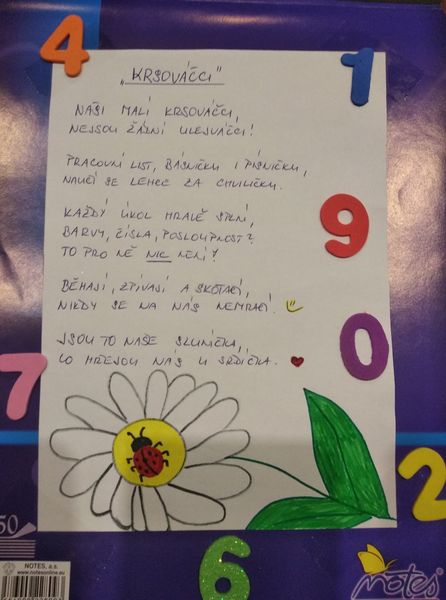 4
1
„KRSOVÁČCI"
NAŠI MALÍ KRSOVÁČCI,
NEJSOU ŽÁDNÍ ULEJVÁČCI!
PRACOVNÍ LIST, BÁSNIČKU I PÍSNIČKU,
NAUČÍ SE LEHCE ZA CHVILIČKU.
KAŽDÝ ÚKOL HRAVĚ SPLNÍ,
BARVY, ČÍSLA, POSLOUPNOST?
TO PRO NĚ NIC NENÍ!
9
BĚHAJÍ, ZPÍVAJÍ A SKOTAČÍ,
NIKDY SE NA NÁS NEMRAČÍ!
JSOU TO NAŠE SLUNÍČKA,
CO HŘEJOU NÁS U SRDÍČKA.
0
7
2
50
6
NOTES, a.s.
www.notesonline.eu
notes